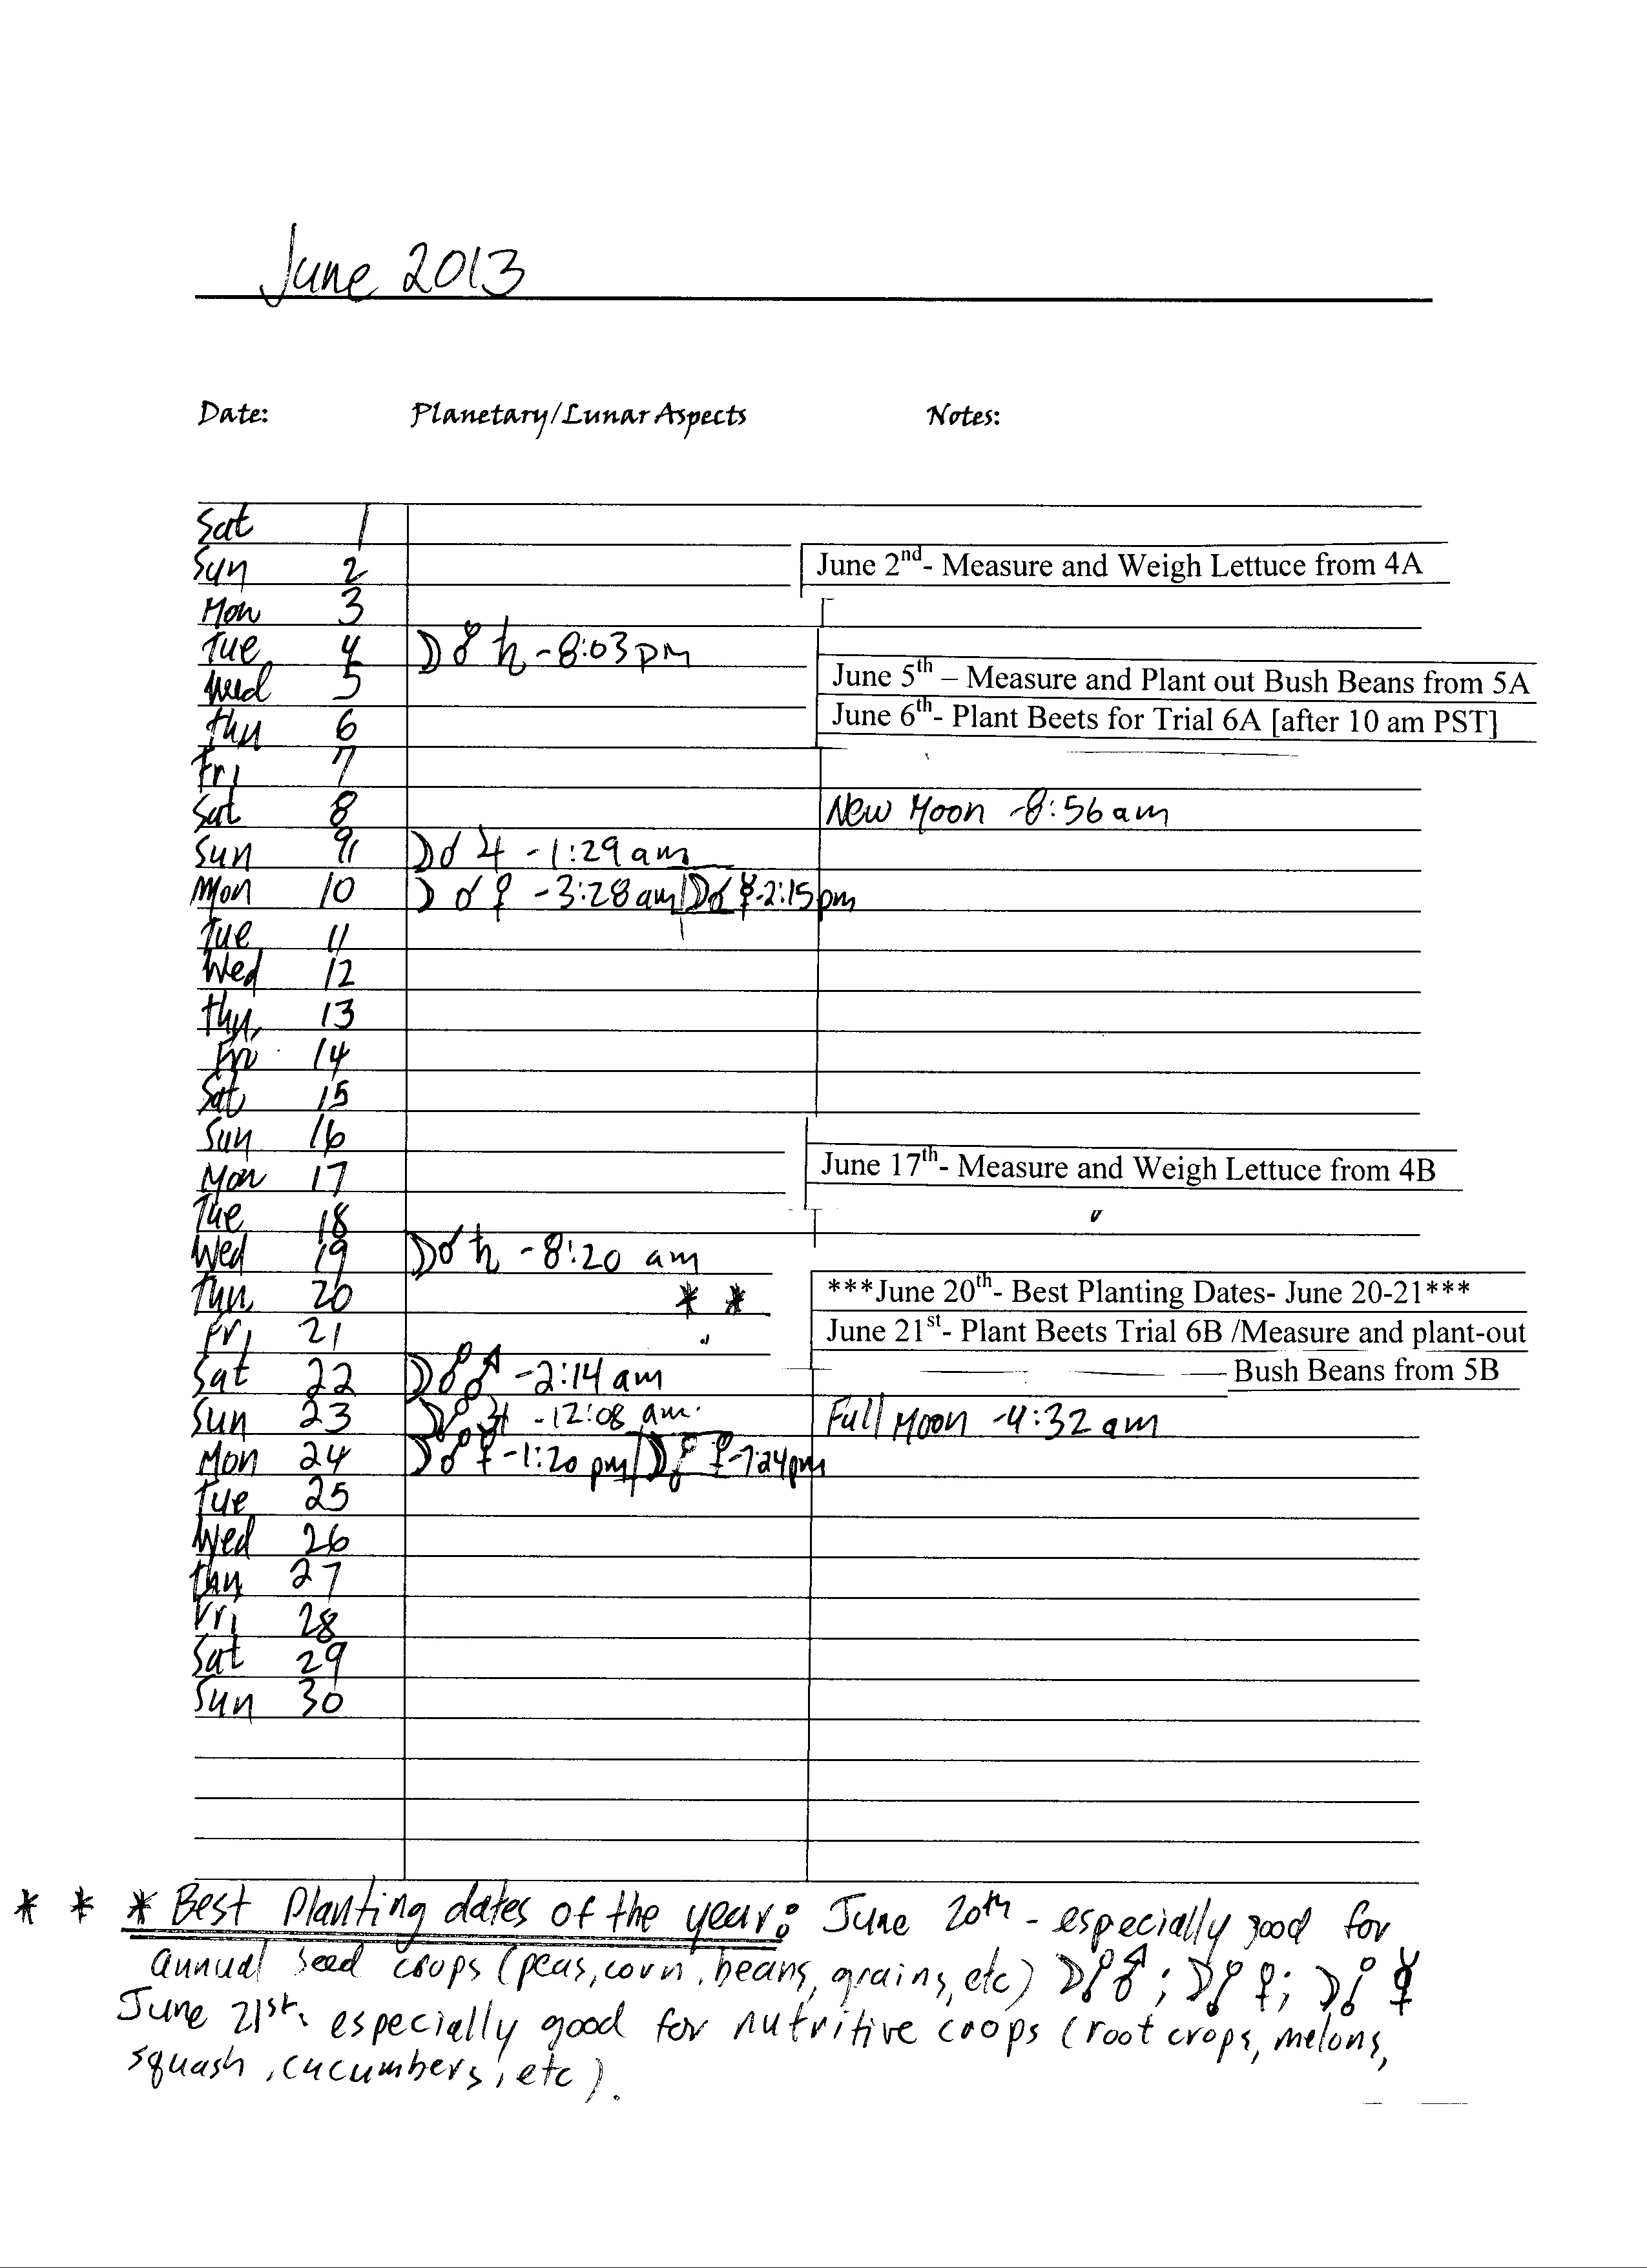 June 2013
Date: Planetary/Lunar Aspects Notes:
Sat 1
Sun 2 June 2nd- Measure and Weigh Lettuce from 4A
Mon 3
Tue 4 ☽ ☍ ♄ - 8:03 pm
Wed 5 June 5th – Measure and Plant out Bush Beans from 5A
Thu 6 June 6th- Plant Beets for Trial 6A [after 10 am PST]
Fri 7
Sat 8 New Moon - 8:56 am
Sun 9 ☽ ☌ ♃ - 1:29 am
Mon 10 ☽ ☌ ♀ - 3:28 am / ☽ ☌ ☿ - 2:15 pm
Tue 11
Wed 12
Thu, 13
Fri 14
Sat 15
Sun 16
Mon 17 June 17th- Measure and Weigh Lettuce from 4B
Tue 18
Wed 19 ☽ ☌ ♄ - 8:20 am
Thu 20 * * ***June 20th- Best Planting Dates- June 20-21***
Fri 21 June 21st- Plant Beets Trial 6B /Measure and plant-out
Bush Beans from 5B
Sat 22 ☽ ☍ ♂ - 2:14 am
Sun 23 ☽ ☍ ♃ - 12:08 am. Full Moon - 4:32 am
Mon 24 ☽ ☍ ☿ - 1:20 pm / ☽ ☍ ♀ - 7:24 pm
Tue 25
Wed 26
Thu 27
Fri 28
Sat 29
Sun 30
* * * Best Planting dates of the year: June 20th - especially good for
annual seed crops (peas, corn, beans, grains, etc) ☽ ☍ ♂; ☽ ☍ ♀; ☽ ☍ ☿
June 21st. especially good for nutritive crops (root crops, melons,
squash, cucumbers, etc).